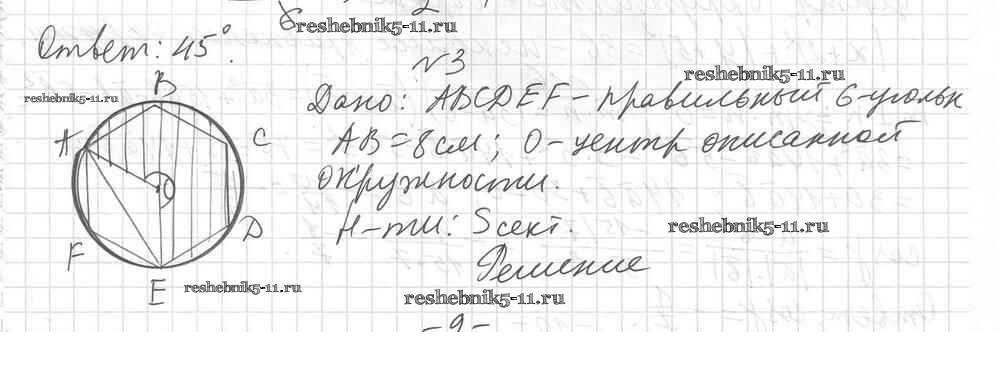 reshebnik5-11.ru
Ответ: 45°.
N3
reshebnik5-11.ru
B
reshebnik5-11.ru
Дано: ABCDEF – правильный 6-угольн
A
C
AB = 8 см; O – центр описанной
O
окружности.
D
Н-ти: Sсект.
reshebnik5-11.ru
F
Решение
E
reshebnik5-11.ru
reshebnik5-11.ru
– 9 –